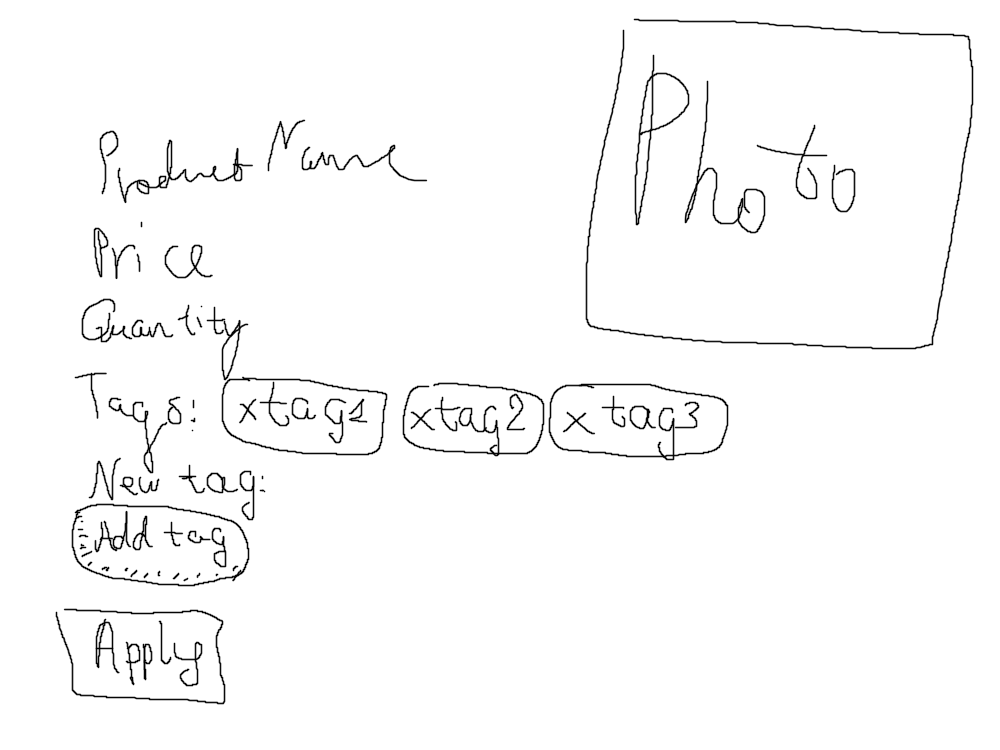 Photo
Product Name
Price
Quantity
Tags: x tag1 x tag2 x tag3
New tag:
Add tag
Apply